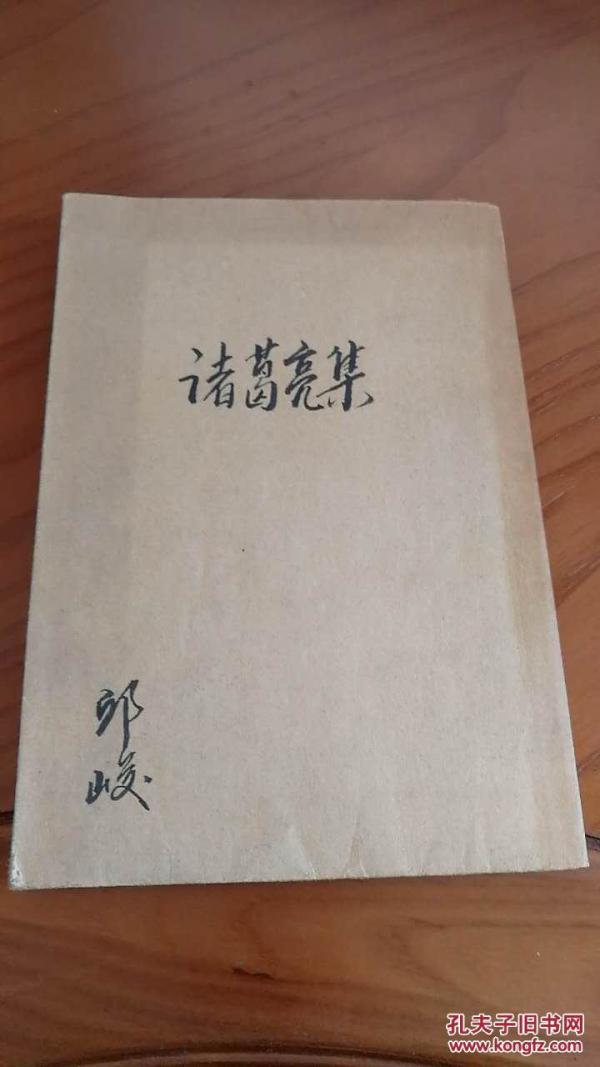 诸葛亮集
邱
峻
孔夫子旧书网
www.kongfz.com